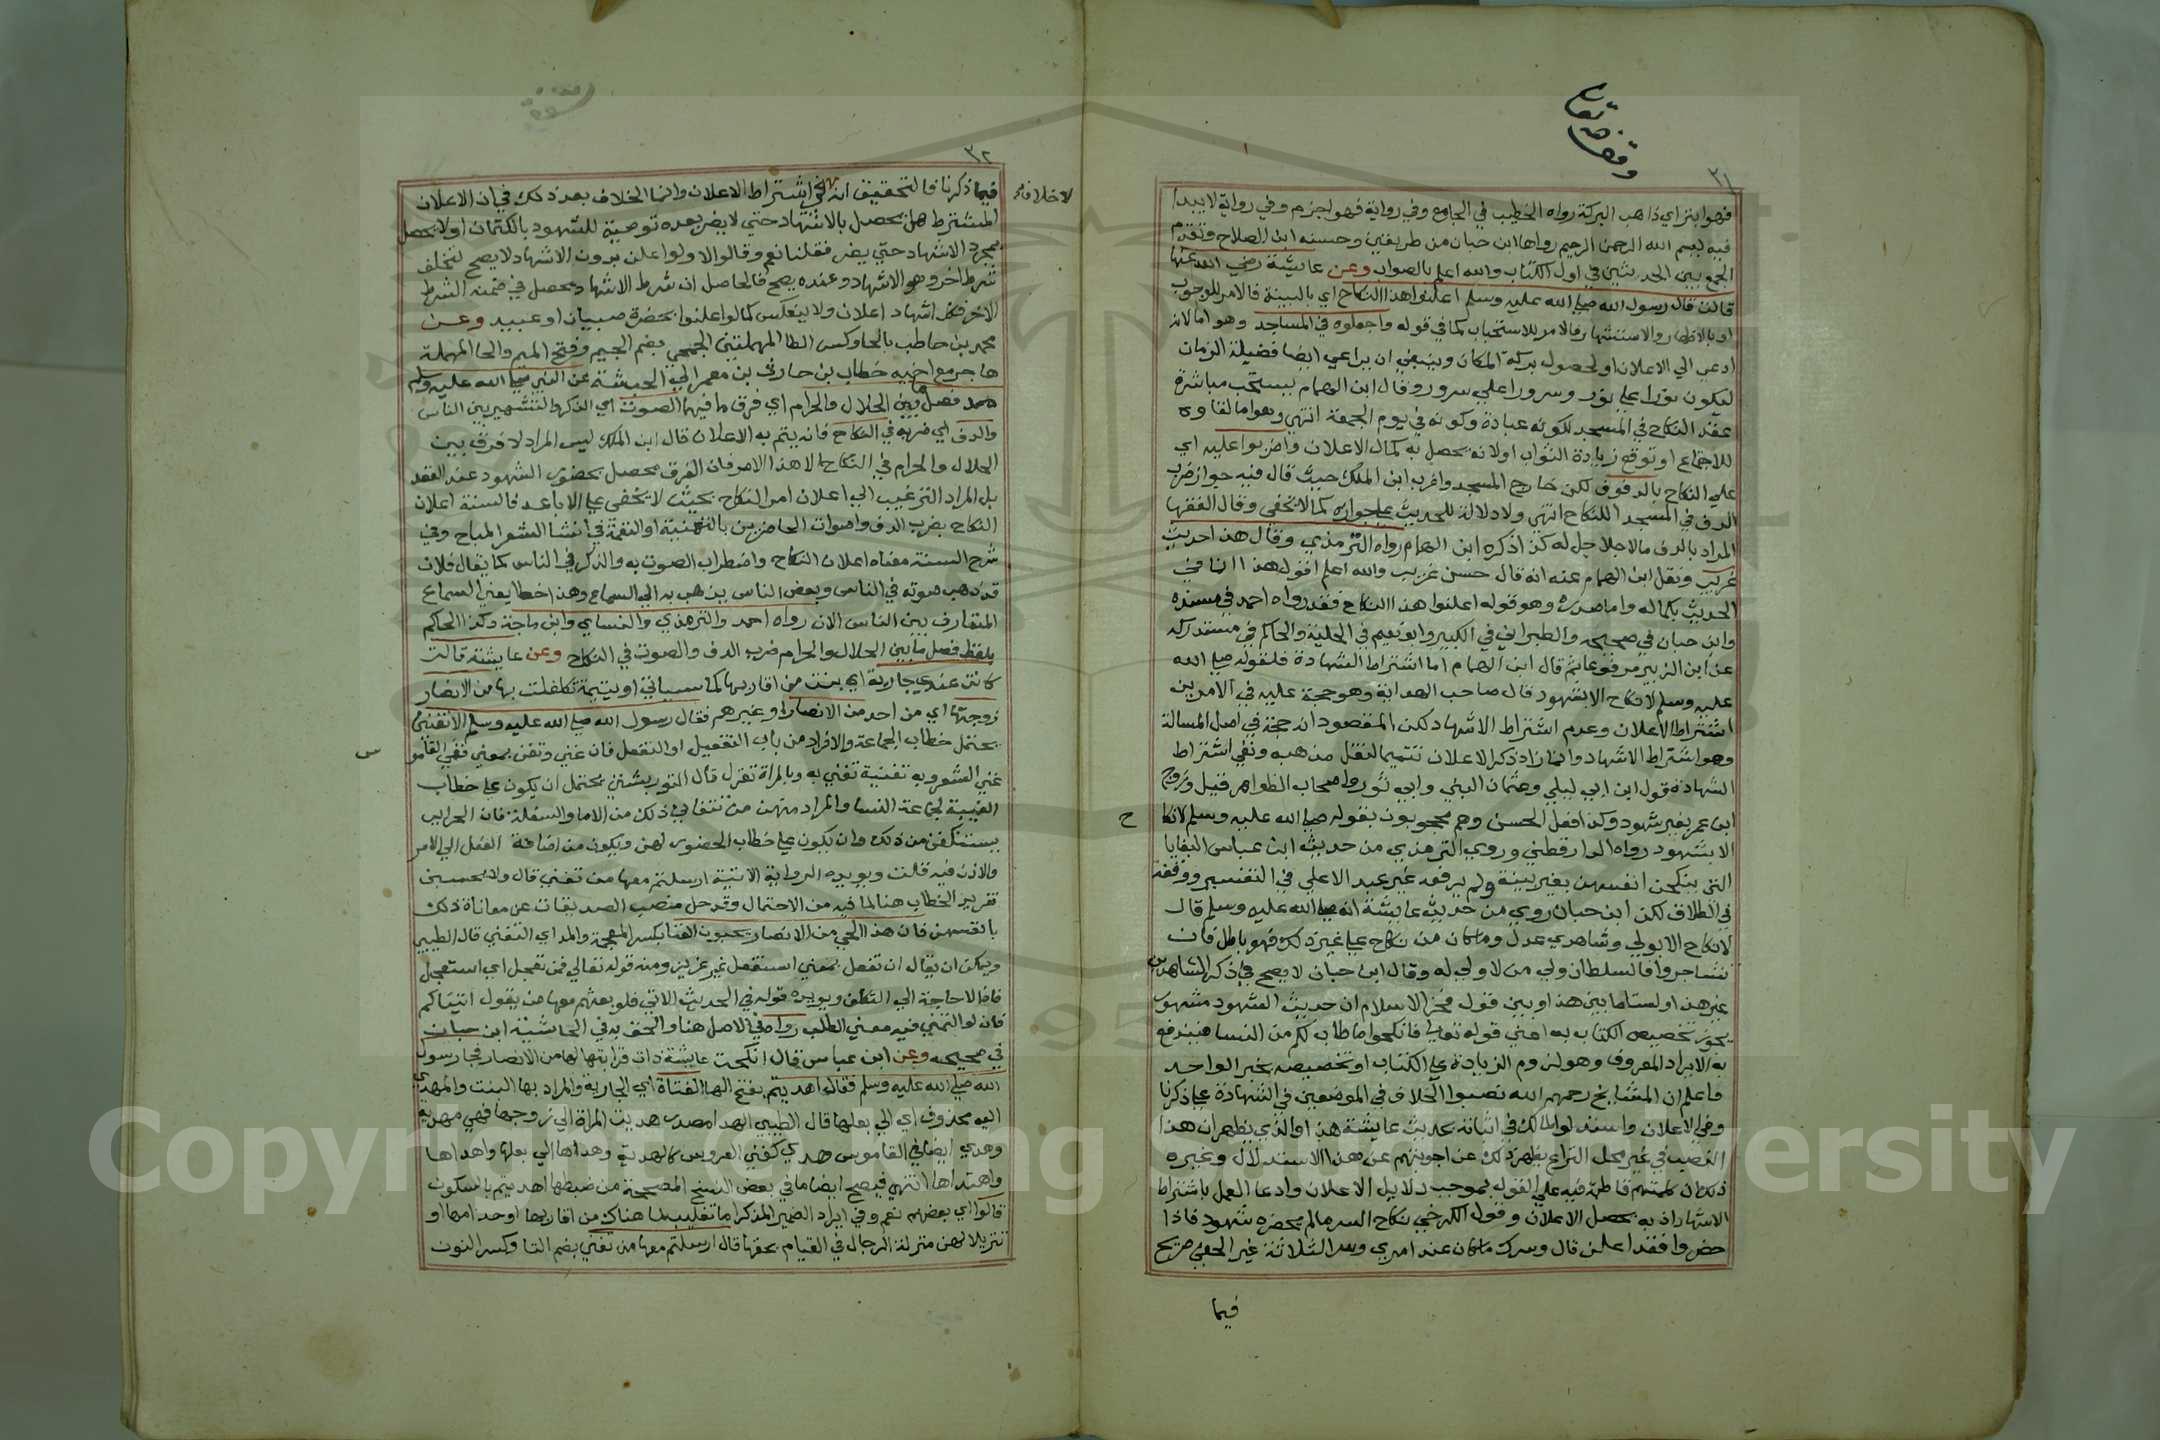 وقف لله تعالى
٣١
فهو ابتراي ذاهب البركة رواه الخطيب في الجامع وفي رواية فهو اجزم وفي رواية لا يبدا
فيه ببسم الله الرحمن الرحيم رواها ابن حبان من طريقين وحسنه ابن الصلاح وتقدم
الجمع بين الحديثين في اول الكتاب والله اعلم بالصواب وعن عايشة رضي الله عنها
قالت قال رسول الله صلي الله عليه وسلم اعلنوا هذا النكاح اي بالبينة فالامر للوجوب
او بالاظهار والاشتهار فالامر للاستحباب كما في قوله واجعلوه في المساجد وهو اما لانه
ادعي الي الاعلان او لحصول بركة المكان وينبغي ان يراعي ايضا فضيلة الزمان
ليكون نورا علي نور وسرورا علي سرور وقال ابن الهمام يستحب مباشرة
عقد النكاح في المسجد لكونه عبادة وكونه في يوم الجمعة انتهي وهو اما لقاوه
للاجتماع او توقع زيادة الثواب او لانه يحصل به كمال الاعلان واضربوا عليه اي
علي النكاح بالدفوف لكن خارج المسجد واغرب ابن الملك حيث قال فيه جواز ضرب
الدف في المسجد للنكاح انتهي ولا دلالة للحديث علي جوازه كما لا يخفي وقال الفقها
المراد بالدف مالا جلاجل له كذا ذكره ابن الهمام رواه الترمذي وقال هذا حديث
غريب ونقل ابن الهمام عنه انه قال حسن غريب والله اعلم اقول هذا انما في
الحديث بكماله واما صدره وهو قوله اعلنوا هذا النكاح فقد رواه احمد في مسنده
وابن حبان في صحيحه والطبراني في الكبير وابو نعيم في الحلية والحاكم في مستدركه
عن ابن الزبير مرفوعا ثم قال ابن الهمام اما اشتراط الشهادة فلقوله صلي الله
عليه وسلم لا نكاح الا بشهود قال صاحب الهداية وهو حجة عليه في الامرين
اشتراط الاعلان وعدم اشتراط الاشهاد لكن المقصود انه حجة في اصل المسالة
وهو اشتراط الاشهاد وانما زاد ذكر الاعلان تتميما لنقل مذهبه ونفي اشتراط
الشهادة قول ابن ابي ليلي وعثمان البتي وابي ثور واصحاب الظواهر قيل وزوج
ابن عمر بغير شهود وكذا فعل الحسن وهم محجوبون بقوله صلي الله عليه وسلم لا نكا
ح
الا بشهود رواه الدارقطني وروي الترمذي من حديث ابن عباس البغايا
التي ينكحن انفسهن بغير بينة ولم يرفعه غير عبد الاعلي في التفسير ووقفه
في الطلاق لكن ابن حبان روي من حديث عايشة انه صلي الله عليه وسلم قال
لا نكاح الا بولي وشاهدي عدل وما كان من نكاح علي غير ذلك فهو باطل فان
تشاجروا فالسلطان ولي من لا ولي له وقال ابن حبان لا يصح في ذكر الشاهدين
غير هذا وليس ما بين هذا وبين قول فخر الاسلام ان حديث الشهود مشهور
يجوز تخصيص الكتاب به اعني قوله تعالي فانكحوا ما طاب لكم من النسا فيندفع
به الايراد المعروف وهو لزوم الزيادة علي الكتاب او تخصيصه بخبر الواحد
فاعلم ان المشايخ رحمهم الله نصبوا الخلاف في الموضعين في الشهادة علي ذكرنا
وفي الاعلان واستدلوا لمالك في اثباته بحديث عايشة هذا والذي يظهر ان هذا
النصب في غير محل النزاع يظهر ذلك عن اجوبتهم عن هذا الاستدلال وغيره
ذلك ان كلمتهم قاطبة فيه علي القول بموجب دلايل الاعلان وادعا العمل باشتراط
الاشهاد اذ به يحصل الاعلان وقول الكرخي نكاح السر ما لم يحضره شهود فاذا
حضروا فقد اعلن قال وسرك ما كان عند امري وسر الثلاثة غير الخفي صريح
فيما
٣٢
فيما ذكرنا فالتحقيق انه في اشتراط الاعلان وانما الخلاف بعد ذلك في ان الاعلان
لا خلاف صح
المشترط هل يحصل بالاشهاد حتي لا يضر بعده توصية للشهود بالكتمان او لا يحصل
بمجرد الاشهاد حتي يضر فقلنا نعم وقالوا لا ولو اعلن بدون الاشهاد لا يصح لتخلف
شرط اخر وهو الاشهاد وعنده يصح فالحاصل ان شرط الاشهاد يحصل في ضمنه الشرط
الاخر فكل اشهاد اعلان ولا ينعكس كما لو اعلنوا بحضرة صبيان او عبيد وعن
محمد بن حاطب بالحا وكسر الطا المهملتين الجمحي بضم الجيم وفتح الميم والحا المهملة
هاجر مع اخيه خطاب بن حارث بن معمر الي الحبشة عن النبي صلي الله عليه وسلم
محمد فصل ما بين الحلال والحرام اي فرق ما فيها الصوت اي الذكر والتشهير بين الناس
والدف اي ضربه في النكاح فانه يتم به الاعلان قال ابن الملك ليس المراد لا فرق بين
الحلال والحرام في النكاح الا هذا الامر فان الفرق يحصل بحضور الشهود عند العقد
بل المراد الترغيب الي اعلان امر النكاح بحيث لا يخفي علي الاباعد فالسنة اعلان
النكاح بضرب الدف واصوات الحاضرين بالتهنية او النغمة في انشا الشعر المباح وفي
شرح السنة معناه اعلان النكاح واضطراب الصوت به والذكر في الناس كما يقال فلان
قد ذهب صوته في الناس وبعض الناس يذهب به الي السماع وهذا خطا يعني السماع
المتعارف بين الناس الان رواه احمد والترمذي والنسايي وابن ماجة وكذا الحاكم
بلفظ فصل ما بين الحلال والحرام ضرب الدف والصوت في النكاح وعن عايشة قالت
كانت عندي جارية اي بنت من اقاربها كما سياتي او يتيمة تكلفت بها من الانصار
زوجتها اي من احد من الانصار او غيرهم فقال رسول الله صلي الله عليه وسلم الا تغنين
يحتمل خطاب الجماعة والافراد من باب التفعيل او التفعل فان غني وتغني بمعني ففي القامو
س
غني الشعر وبه تغنية تغني به وبالمراة تغزل قال التوربشتي يحتمل ان يكون علي خطاب
الغيبة لجماعة النسا والمراد منهن من تتعاني ذلك من الاما والسفلة فان الحراير
يستنكفن من ذلك وان يكون علي خطاب الحضور لهن ويكون من اضافة الفعل الي الامر
والاذن فيه قلت ويويده الرواية الاتية ارسلتم معها من تغني قال ولا يحسن
تقرير الخطاب هنا لما فيه من الاحتمال وقد جل منصب الصديقات عن معاناة ذلك
بانفسهن فان هذا الحي من الانصار يحبون الغنا بكسر المعجمة والمد اي التغني قال الطيبي
ويمكن ان يقال ان تفعل بمعني استفعل غير عزيز ومنه قوله تعالي فمن تعجل اي استعجل
فاذا لا حاجة الي التكلف ويويده قوله في الحديث الاتي فلو بعثتم معها من يقول اتيناكم
فان لو التمني فيه معني الطلب رواه في الاصل هنا والحق به في الحاشية ابن حبان
في صحيحه وعن ابن عباس قال انكحت عايشة ذات قرابة لها من الانصار فجا رسول
الله صلي الله عليه وسلم فقال اهديتم بفتح الها الفتاة اي الجارية والمراد بها البنت والمهدي
اليه محذوف اي الي بعلها قال الطيبي الهدا مصدر هديت المراة الي زوجها فهي مهدية
وهدي ايضا في القاموس هدي كغني العروس كالهدية وهداها الي بعلها واهداها
واهتداها انتهي فيصح ايضا ما في بعض النسخ المصححة من ضبطها اهديتم بالسكون
قالوا اي بعضهم نعم وفي ايراد الضمير المذكر اما تغليب لما هناك من اقاربها او خدامها او
تنزيلا لهن منزلة الرجال في القيام بحقها قال ارسلتم معها من تغني بضم التا وكسر النون
Copyright © King Saud University